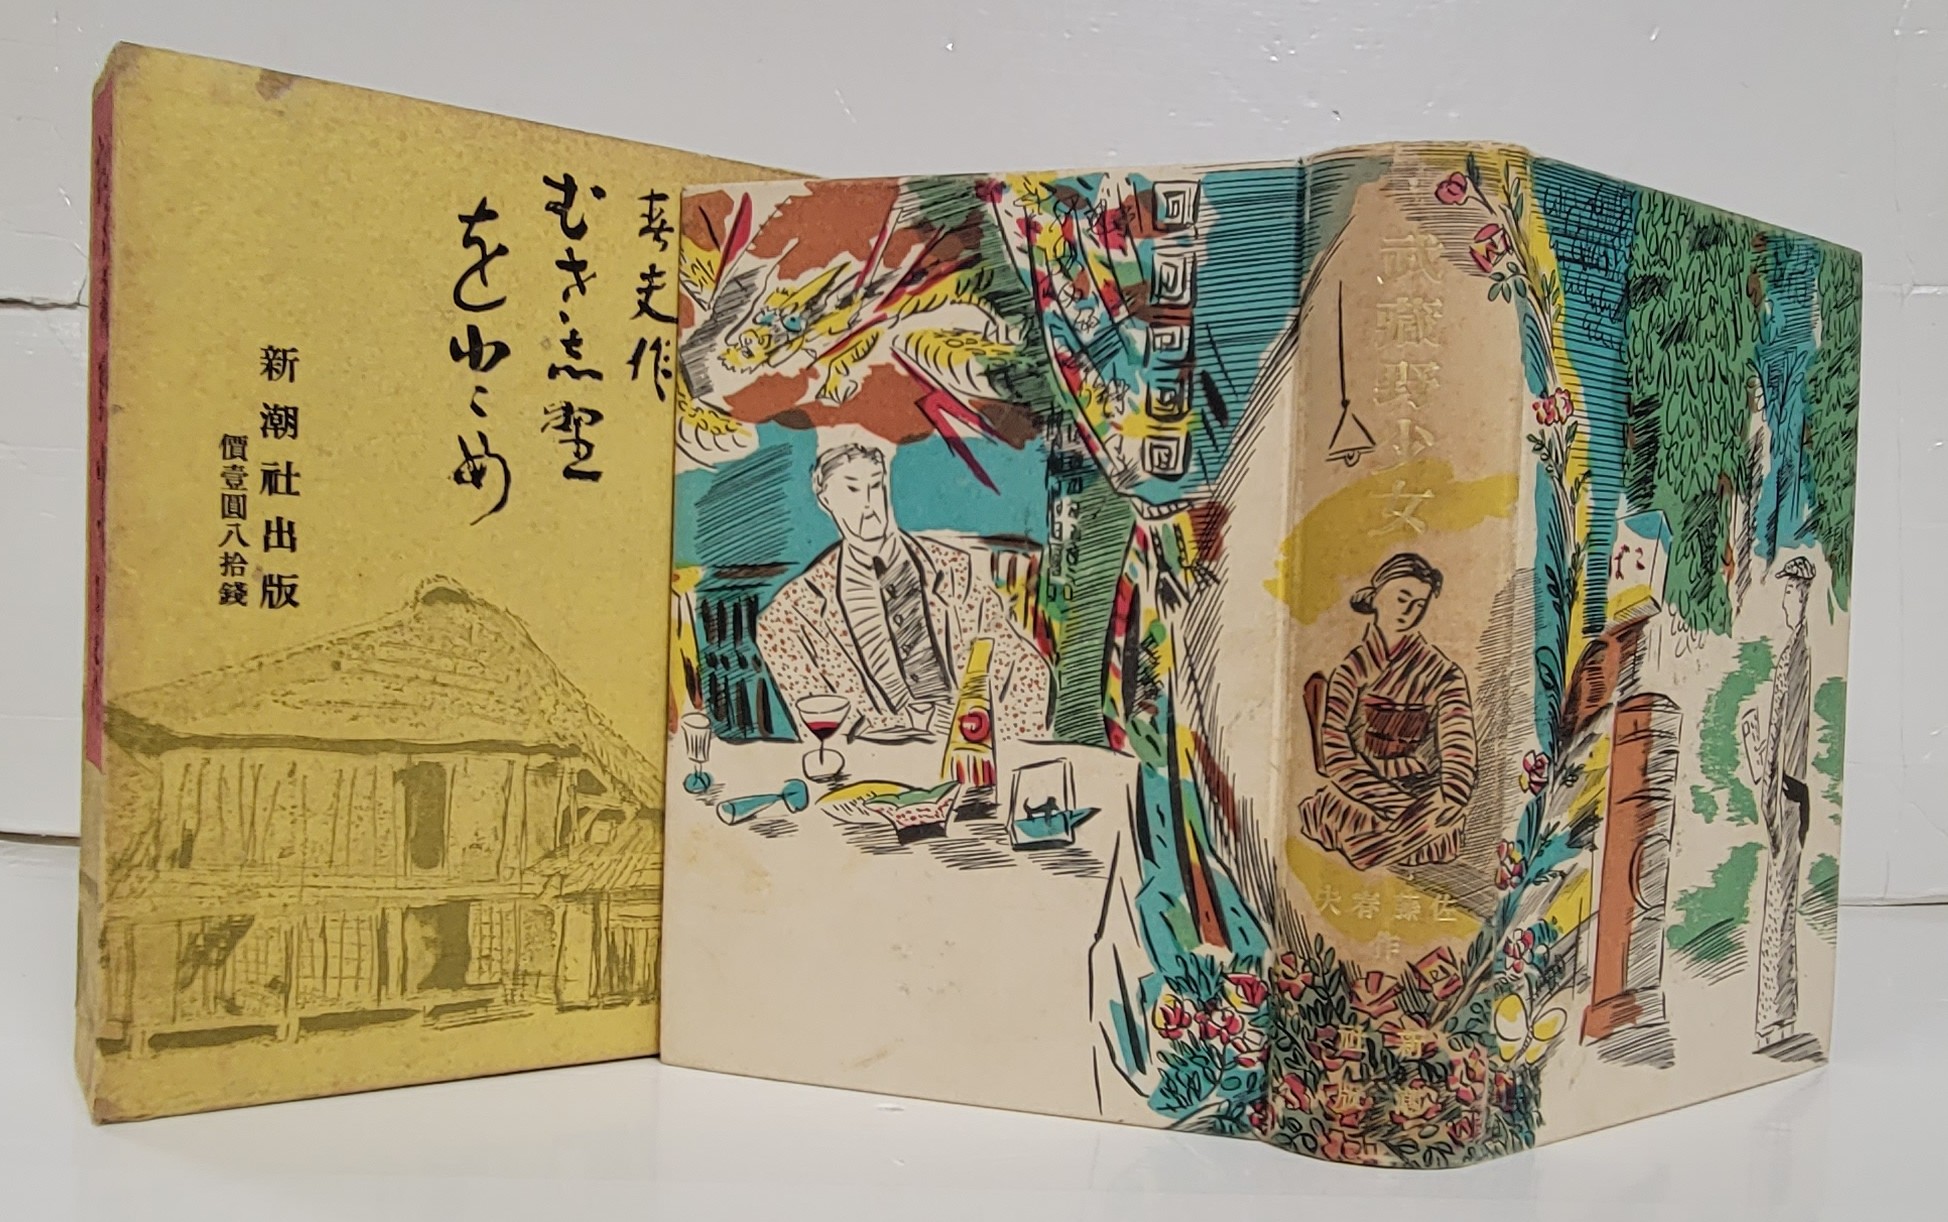 春夫作
むさし野
をとめ
新潮社出版
價壹圓八拾錢
武藏野少女
佐藤春夫
作
新潮
社版
たばこ